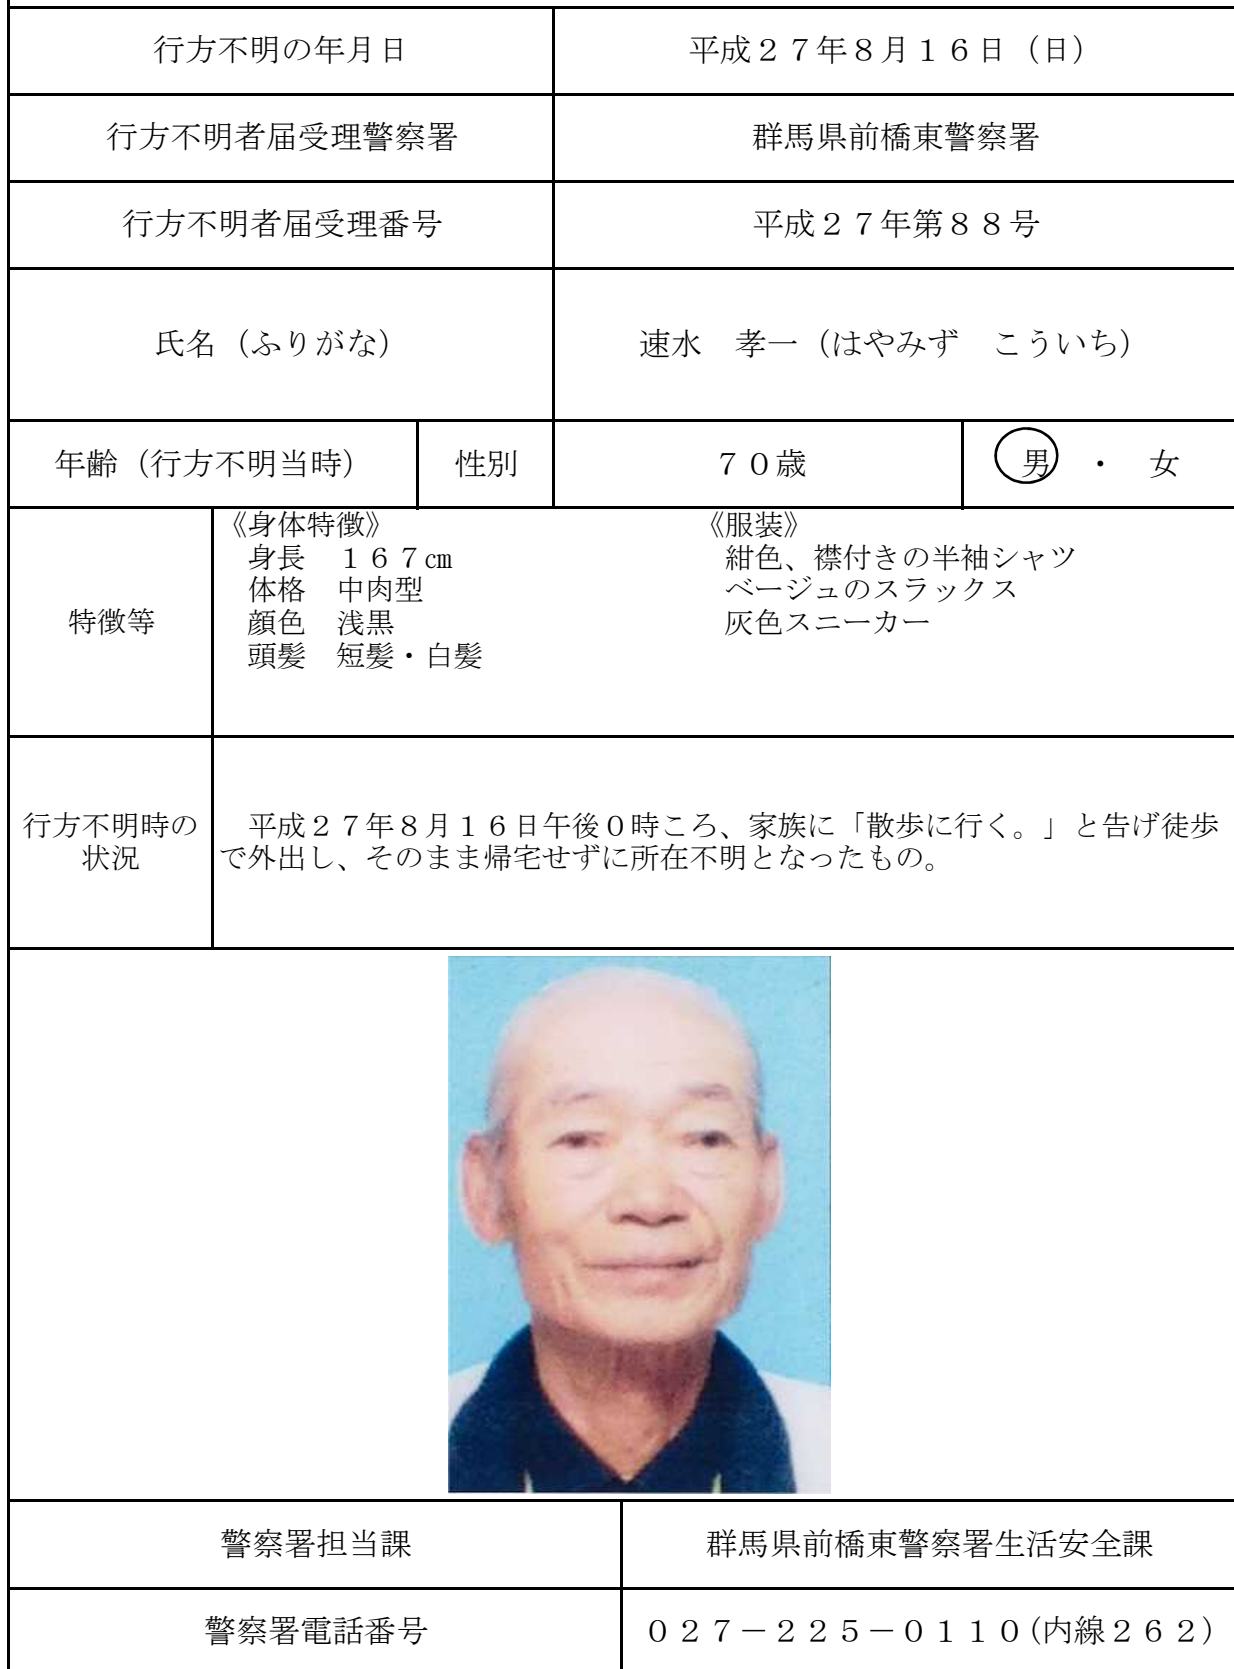 行方不明の年月日
平成２７年８月１６日（日）
行方不明者届受理警察署
群馬県前橋東警察署
行方不明者届受理番号
平成２７年第８８号
氏名（ふりがな）
速水　孝一（はやみず　こういち）
年齢（行方不明当時）
性別
７０歳
男　・　女
特徴等
《身体特徴》
身長　１６７㎝
体格　中肉型
顔色　浅黒
頭髪　短髪・白髪
《服装》
紺色、襟付きの半袖シャツ
ベージュのスラックス
灰色スニーカー
行方不明時の
状況
平成２７年８月１６日午後０時ころ、家族に「散歩に行く。」と告げ徒歩
で外出し、そのまま帰宅せずに所在不明となったもの。
警察署担当課
群馬県前橋東警察署生活安全課
警察署電話番号
０２７－２２５－０１１０(内線２６２)